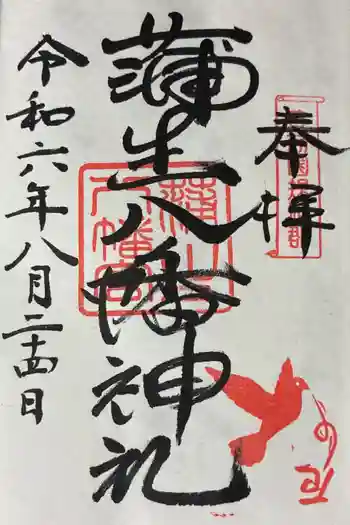 奉拝
蒲生八幡神社
令和六年八月二十四日